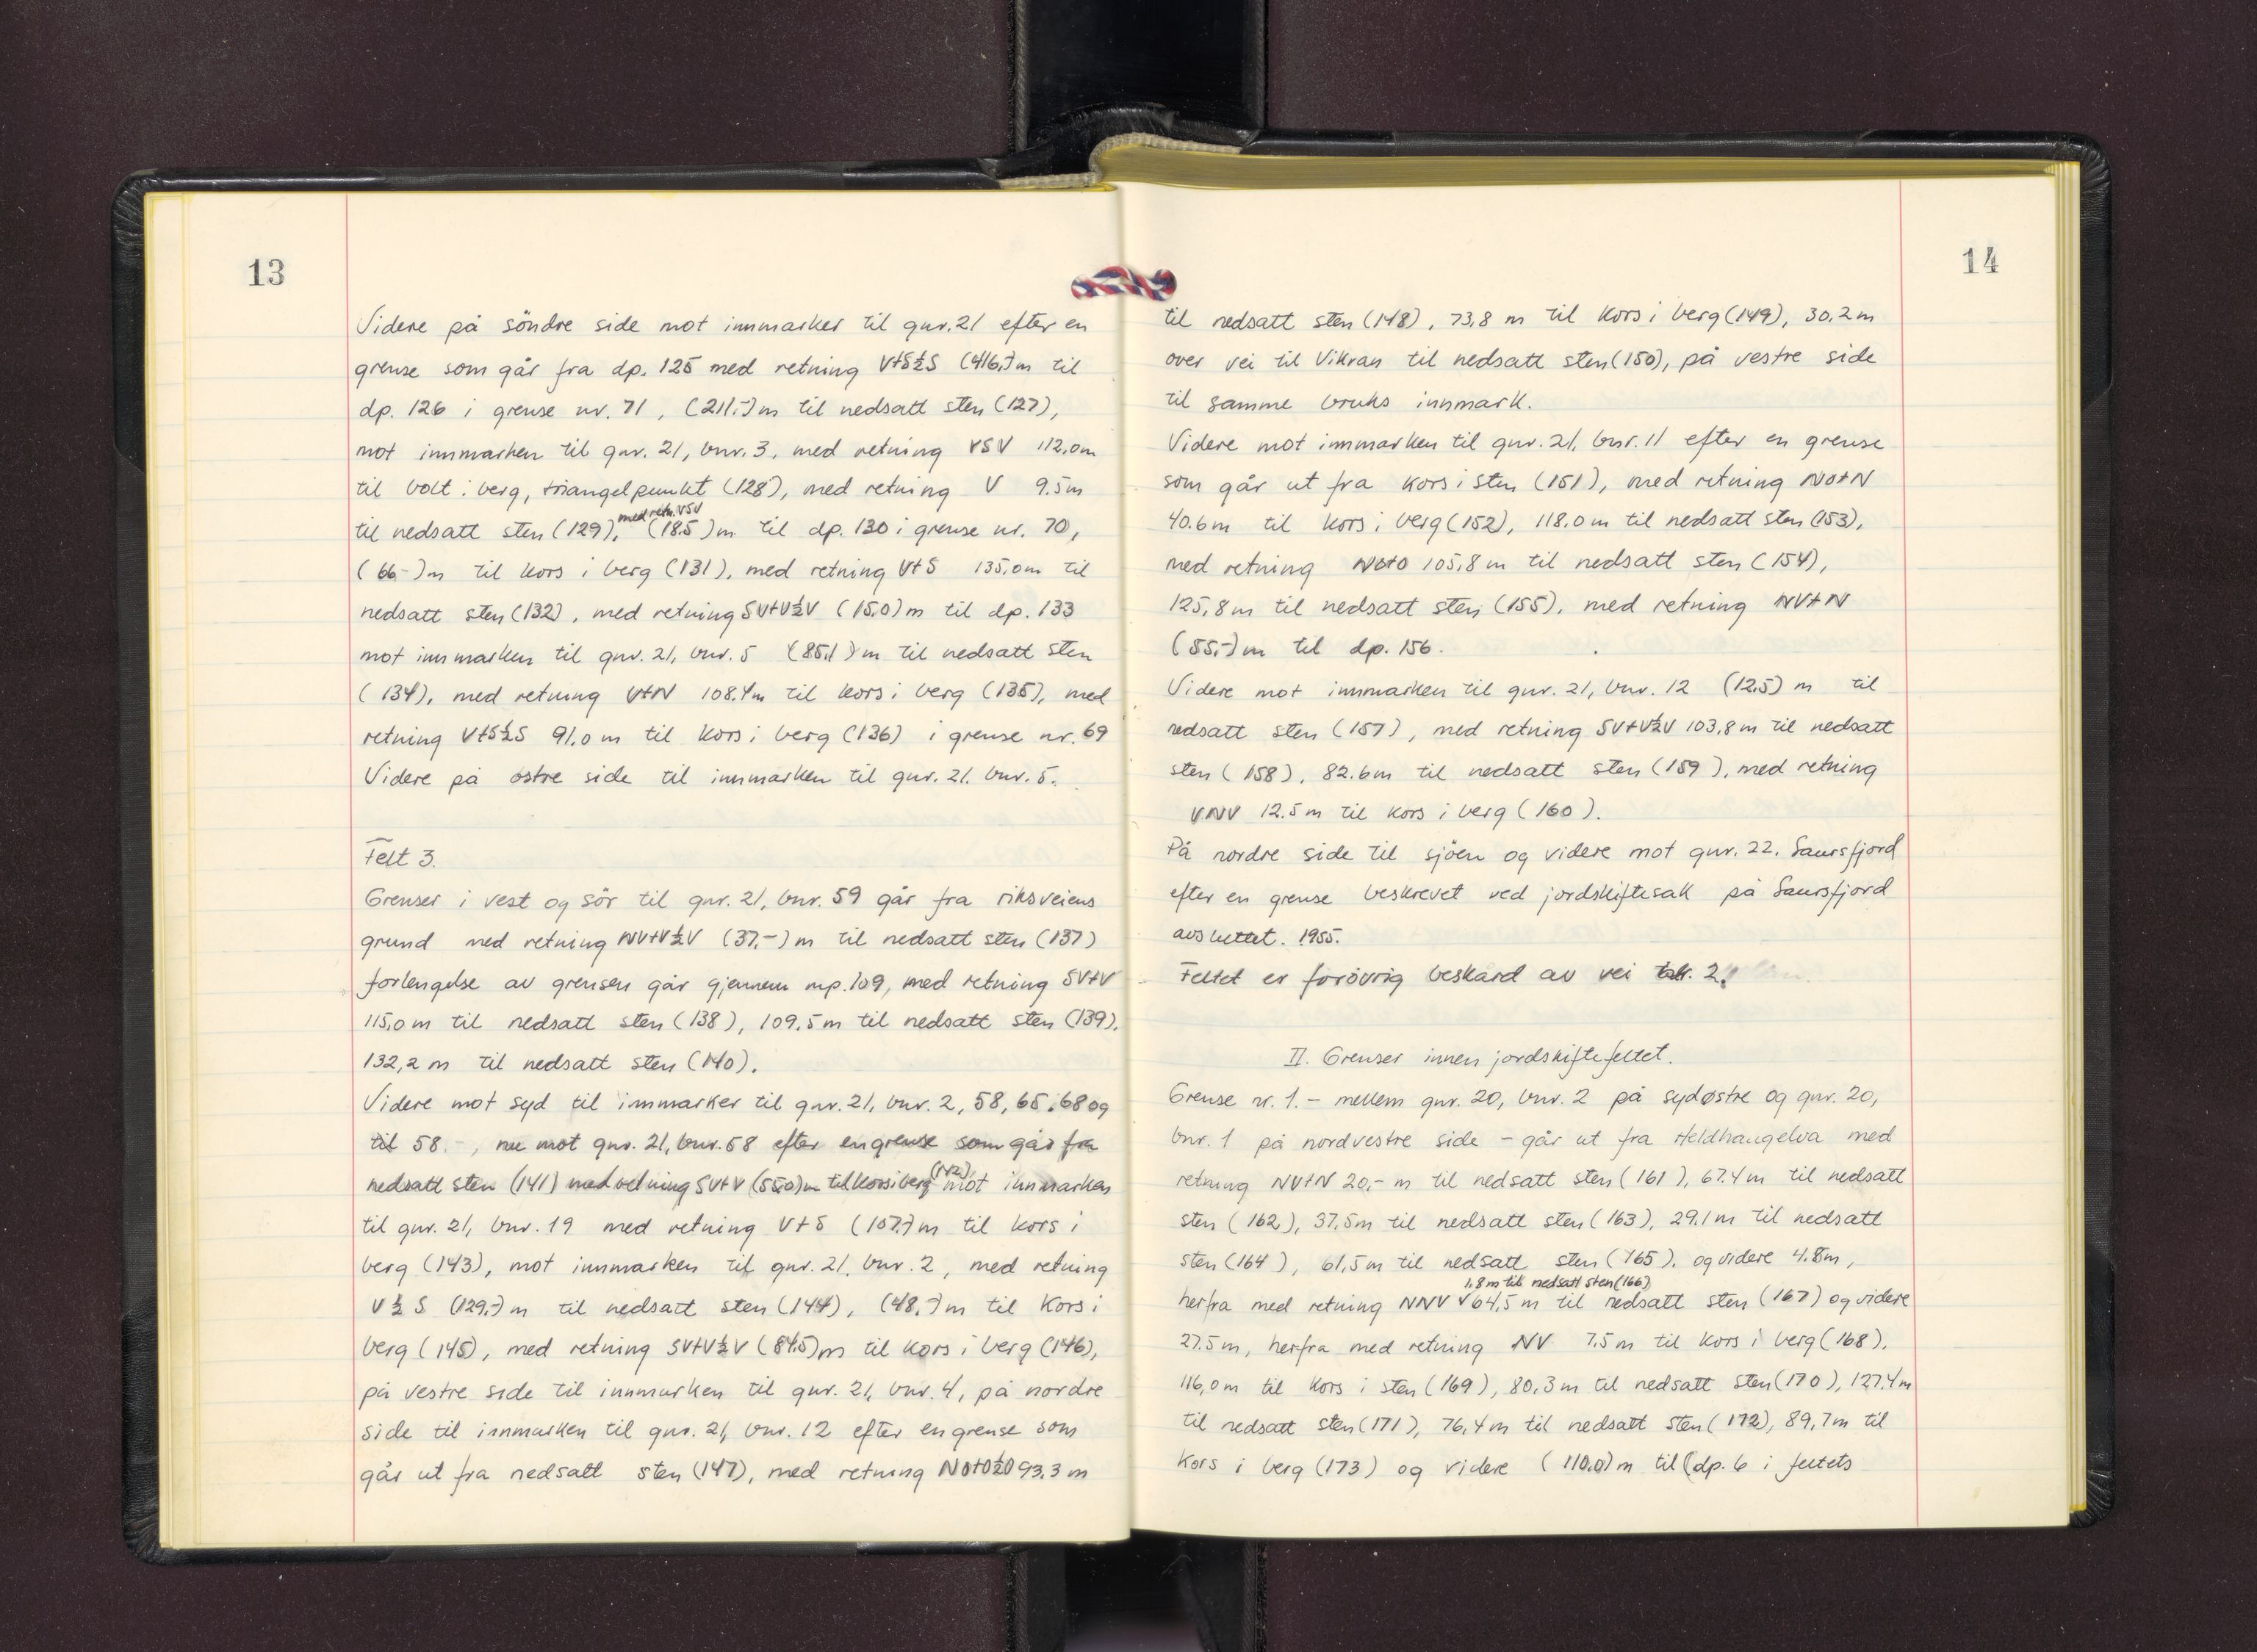 13
Videre på söndre side mot innmarker til gnr. 21 efter en
grense som går fra dp. 125 med retning V+S½S (416,-)m til
dp. 126 i grense nr. 71, (211,-)m til nedsatt sten (127),
mot innmarken til gnr. 21, bnr. 3, med retning VSV 112,0m
til bolt i berg, triangelpunkt (128), med retning V 9.5m
med retn. VSV
til nedsatt sten (129), (18.5)m til dp. 130 i grense nr. 70,
(66.-)m til kors i berg (131), med retning V+S 135,0m til
nedsatt sten (132), med retning SV+V½V (15,0)m til dp. 133
mot innmarken til gnr. 21, bnr. 5 (85,1)m til nedsatt sten
(134), med retning V+N 108.4m til kors i berg (135), med
retning V+S½S 91,0m til kors i berg (136) i grense nr. 69
Videre på östre side til innmarken til gnr. 21. bnr. 5.
Felt 3.
Grenser i vest og sör til gnr. 21, bnr. 59 går fra riksveiens
grund med retning NV+V½V (37,-)m til nedsatt sten (137)
forlengelse av grensen går gjennem mp. 109, med retning SV+V
115,0m til nedsatt sten (138), 109.5m til nedsatt sten (139).
132,2m til nedsatt sten (140).
Videre mot syd til innmarker til gnr. 21, bnr. 2, 58, 65, 68 og
til 58 -, mot gnr. 21, bnr. 58 efter en grense som går fra
(142)
nedsatt sten (141) med retning SV+V (55,0)m til kors i berg mot innmarken
til gnr. 21, bnr. 19 med retning V+S (107,-)m til kors i
berg (143), mot innmarken til gnr. 21. bnr. 2, med retning
V½S (129,-)m til nedsatt sten (144), (48,-)m til kors i
berg (145), med retning SV+V½V (84.5)m til kors i berg (146),
på vestre side til innmarken til gnr. 21, bnr. 4, på nordre
side til innmarken til gnr. 21, bnr. 12 efter en grense som
går ut fra nedsatt sten (147), med retning NO+O½O 93.3 m
14
til nedsatt sten (148), 73,8 m til kors i berg (149), 30.2m
over vei til Vikran til nedsatt sten (150), på vestre side
til samme bruks innmark.
Videre mot innmarken til gnr. 21, bnr. 11 efter en grense
som går ut fra kors i sten (151), med retning NO+N
40.6m til kors i berg (152), 118.0m til nedsatt sten (153),
med retning NO+O 105,8m til nedsatt sten (154),
125,8m til nedsatt sten (155), med retning NV+N
(55,-)m til dp. 156.
Videre mot innmarken til gnr. 21, bnr. 12 (12.5) m til
nedsatt sten (157), med retning SV+V½V 103,8m til nedsatt
sten (158), 82.6m til nedsatt sten (159), med retning
VNV 12.5m til kors i berg (160).
På nordre side til sjöen og videre mot gnr. 22. Saursfjord
efter en grense beskrevet ved jordskiftesak på Saursfjord
avsluttet. 1955.
Feltet er forövrig beskård av vei 2.
II. Grenser innen jordskiftefeltet.
Grense nr. 1. - mellem gnr. 20, bnr. 2 på sydøstre og gnr. 20,
bnr. 1 på nordvestre side - går ut fra Heldhaugelva med
retning NV+N 20,- m til nedsatt sten (161), 67.4m til nedsatt
sten (162), 37,5m til nedsatt sten (163), 29.1m til nedsatt
sten (164), 61,5m til nedsatt sten (165), og videre 4.8m,
1,8m til nedsatt sten (166)
herfra med retning NNV √64,5m til nedsatt sten (167) og videre
27.5m, herfra med retning NV 7.5m til kors i berg (168),
116,0m til kors i sten (169), 80,3m til nedsatt sten (170), 127,4m
til nedsatt sten (171), 76,4m til nedsatt sten (172), 89,7m til
kors i berg (173) og videre (110.0)m til (dp. 6 i feltets